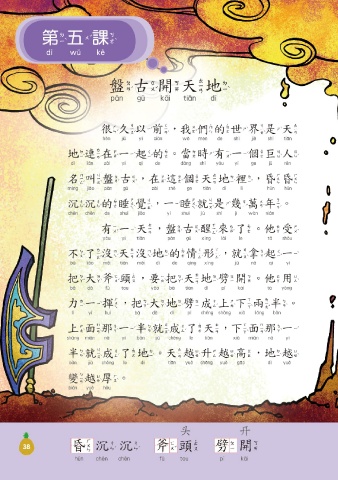 第五課
dì wǔ kè
盤古開天地
pán gǔ kāi tiān dì
很久以前，我們的世界是天
地連在一起的。當時有一個巨人
名叫盤古，在這個天地裡，昏昏
沉沉的睡覺，一睡就是幾萬年。
有一天，盤古醒來了。他受
不了沒天沒地的情形，就拿起一
把大斧頭，要把天地劈開。他用
力一揮，把大地劈成上下兩半。
上面那一半就成了天，下面那一
半就成了地。天越升越高，地越
變越厚。
头 升
昏沉沉 斧頭 劈開
hūn chén chén fǔ tou pī kāi
38